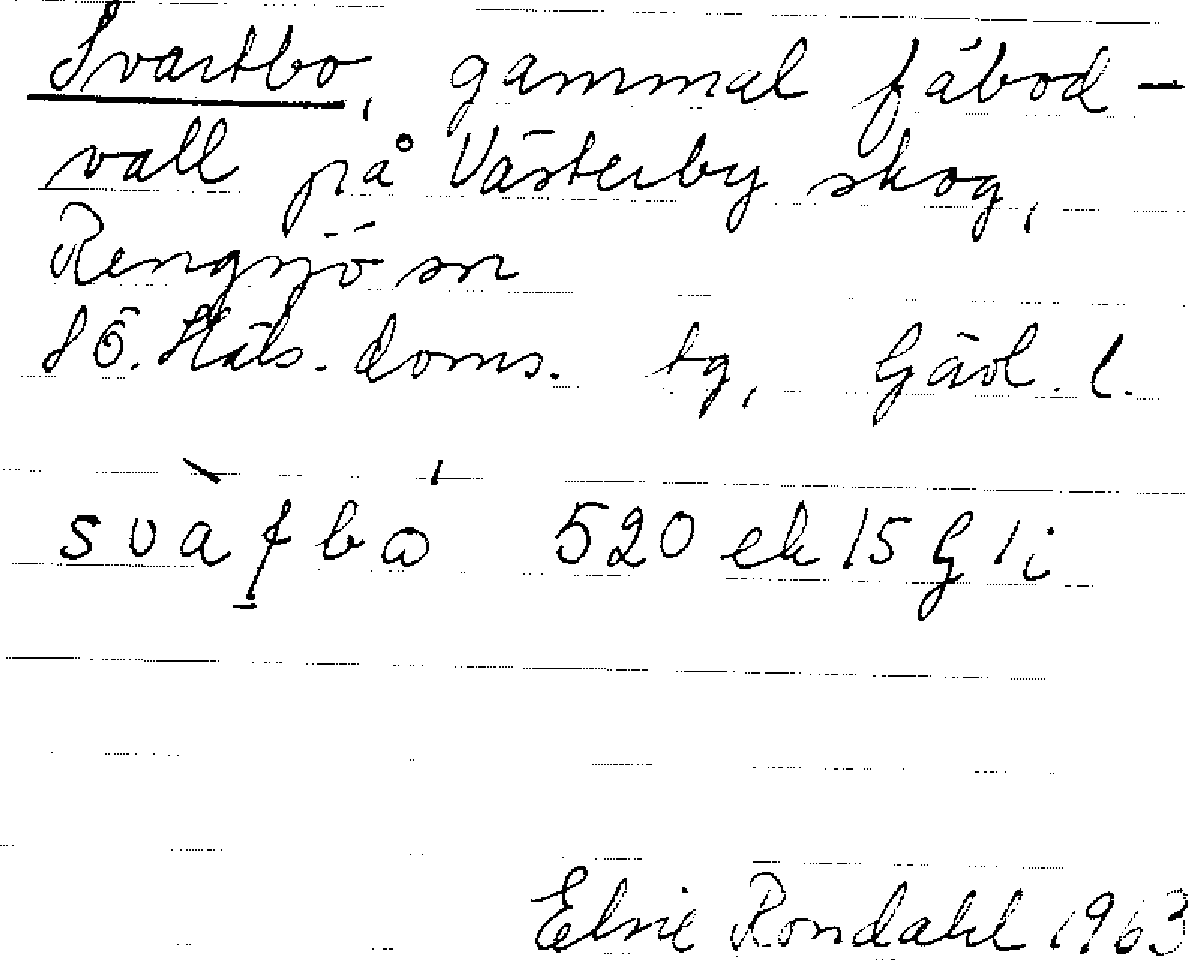 Svartbo, gammal fäbod-
vall på Västerby skog,
Rengsjö sn
SÖ. Häls. doms. tg, Gävl. l.
520 ek 15 G 1 i
Elsie Rondahl 1963